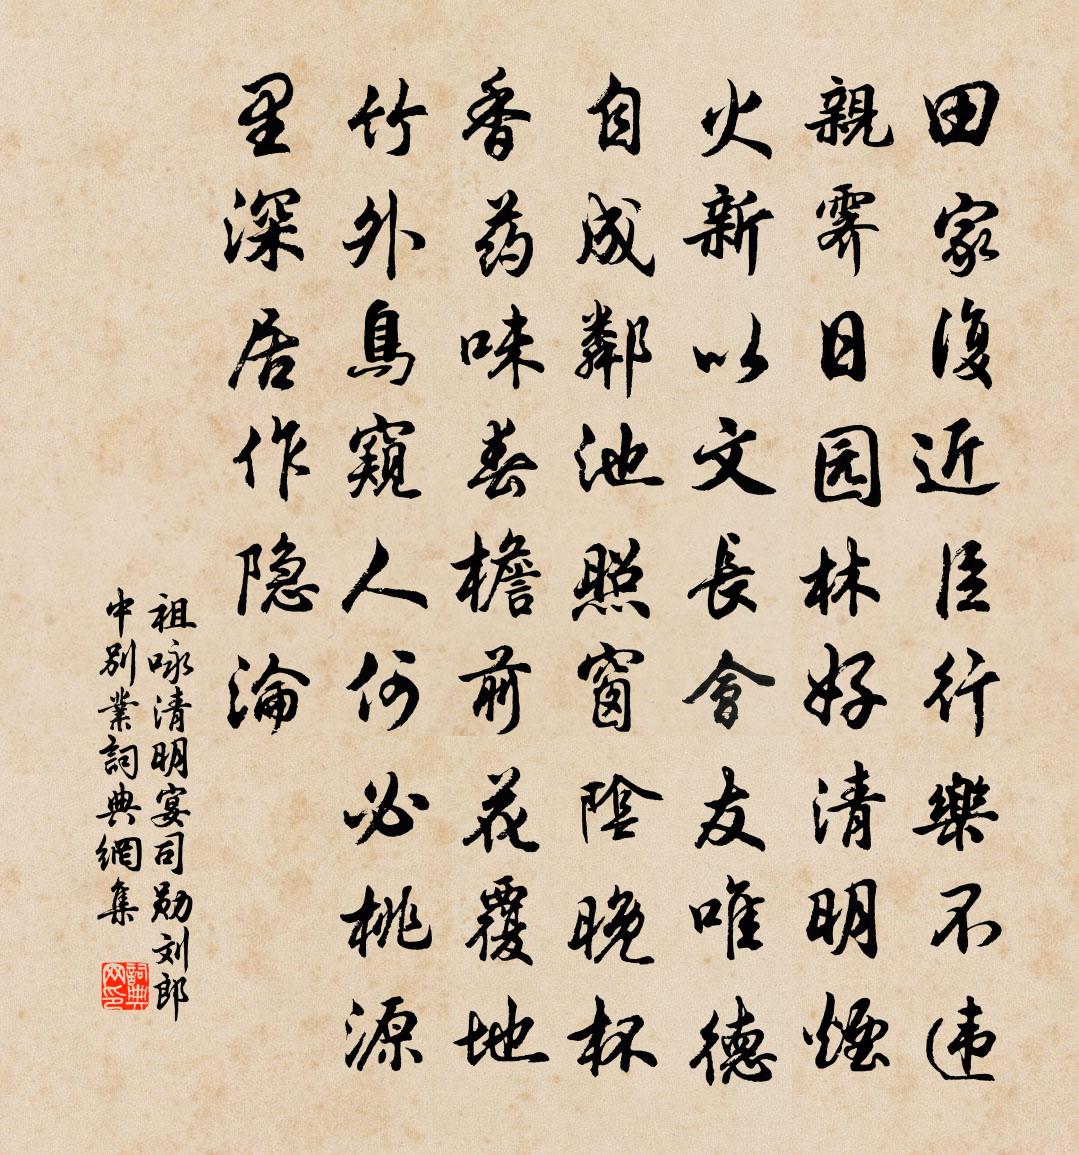 田家復近臣行樂不违
親霽日园林好清明煙
火新以文長會友唯德
自成鄰池照窗陰晚杯
香药味春檐前花覆地
竹外鳥窺人何必桃源
里深居作隐淪
祖咏清明宴司勋刘郎
中别業詞典網集
詞典
网印